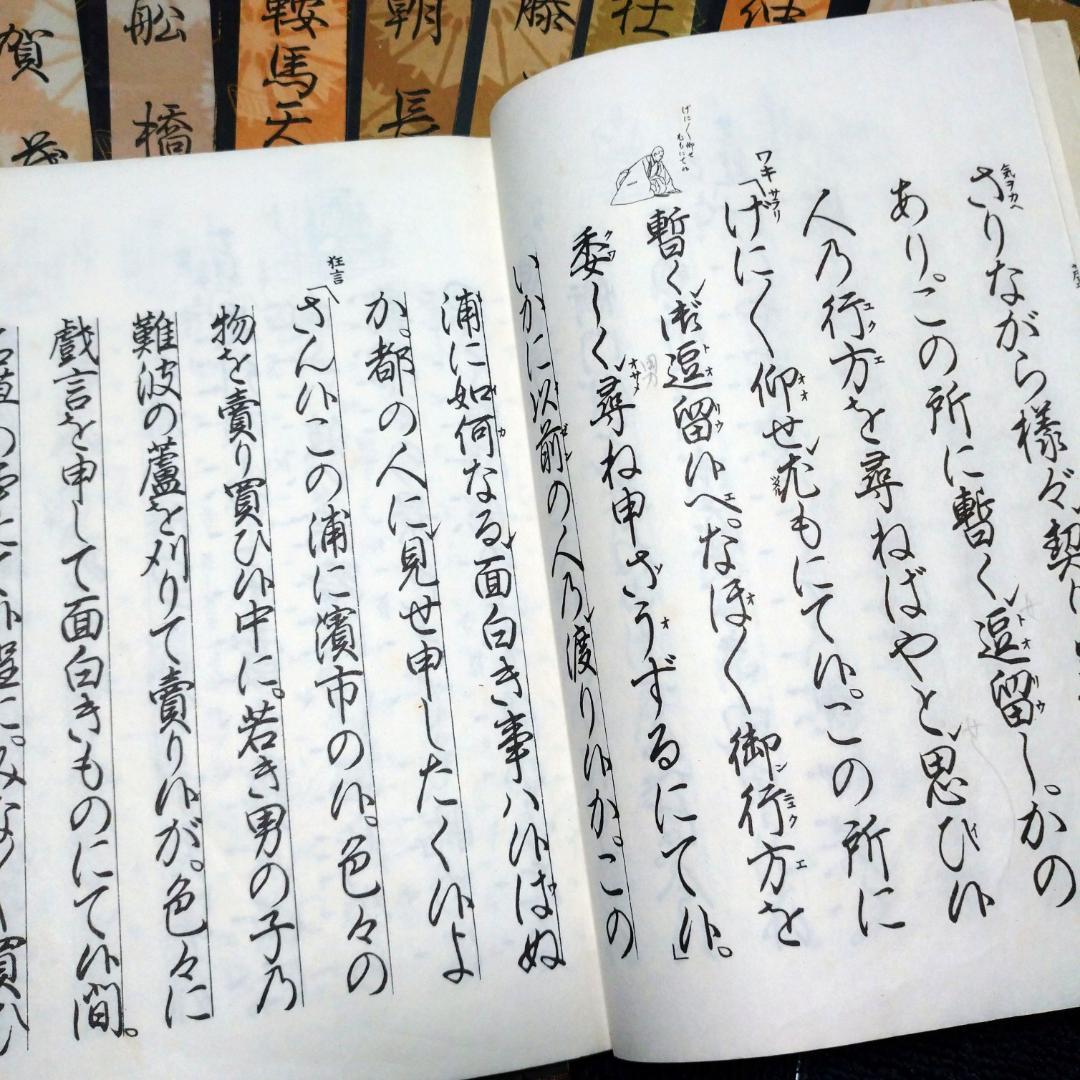 気ヲカヘ
さりながら様々契り
あり。この所に暫く逗留し。かの
人乃行方を尋ねばやと思ひ候
ワキ サラリ
「げに〱仰せ尤もにて候。この所に
暫く御逗留候へ。なほ〱御行方を
委しく尋ね申さうずるにて候」。
げに〱仰せ
もにて候
いかに以前の人乃渡り候か。この
浦に如何なる面白き事ハ候はぬ
か。都の人に見せ申したく候よ
狂言
「さん候この浦に濱市の候。色々の
物を賣り買ひ候中に。若き男の子乃
難波の蘆を刈りて賣り候が。色々に
戯言を申して面白きものにて候間。
買ひ
賀茂
船橋
鞍馬天
朝長
藤